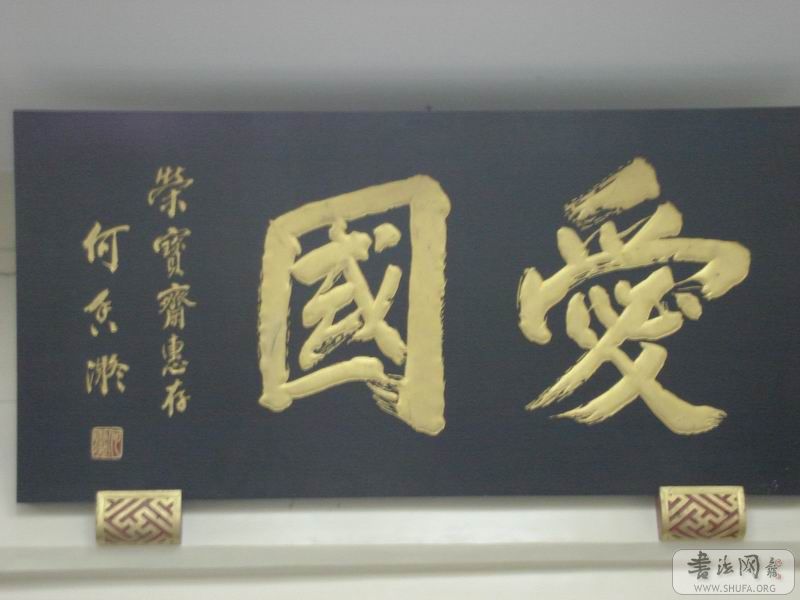 愛國
榮寶齋惠存
何香凝
书法网
WWW.SHUFA.ORG